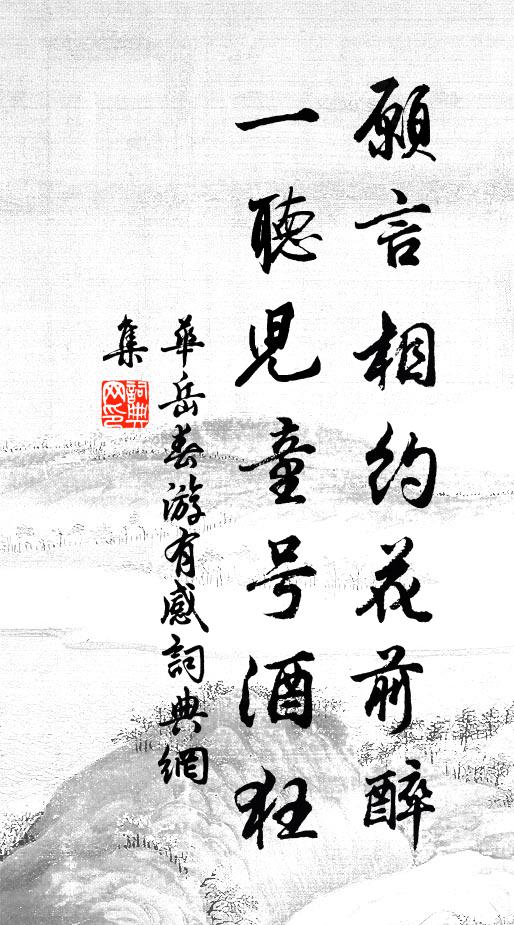 願言相約花前醉
一聽児童号酒狂
華岳春游有感詞典網
集
詞典
网印